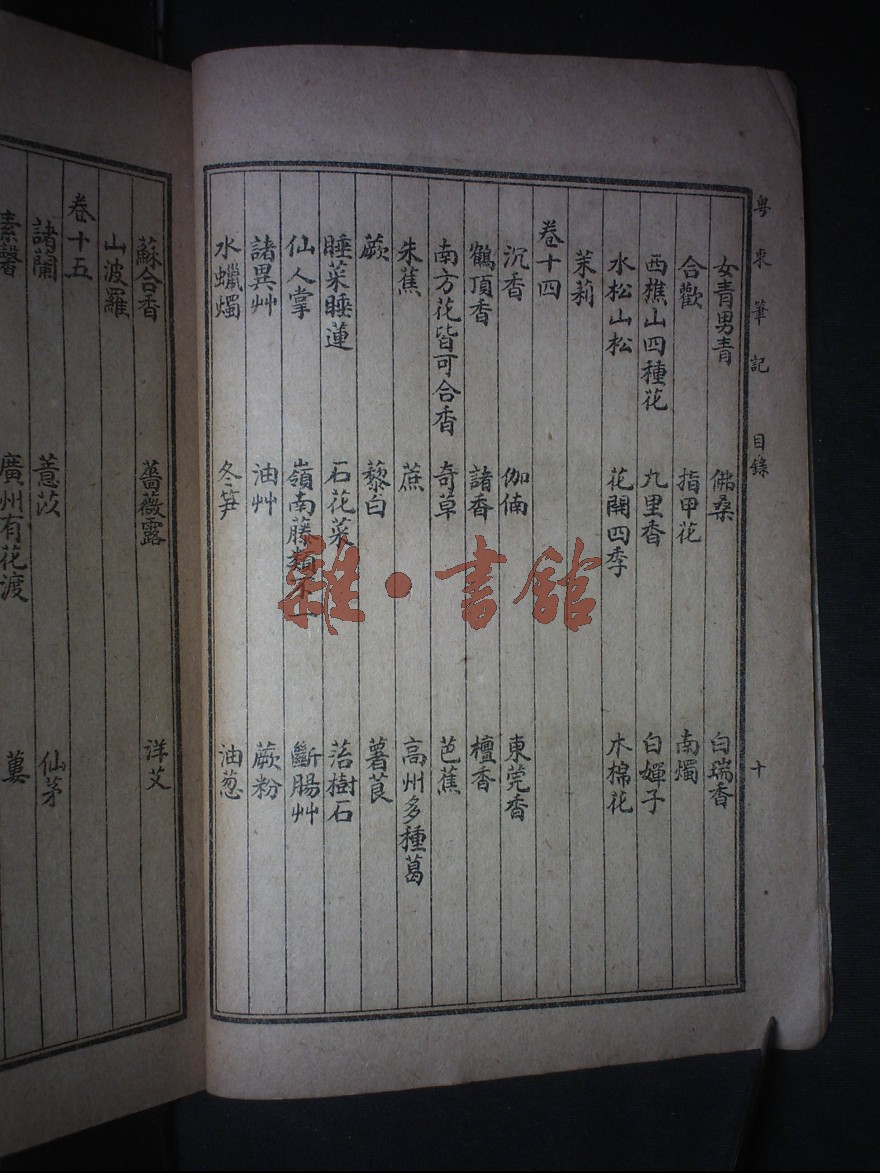 粵東筆記 目錄 十
女青男青 佛桑 白瑞香
合歡 指甲花 南燭
西樵山四種花 九里香 白嬋子
水松山松 花開四季 木棉花
茉莉
卷十四
沉香 伽倆 東莞香
鶴頂香 諸香 檀香
南方花皆可合香 奇草 芭蕉
朱蕉 蔗 高州多種葛
蕨 藜白 薯莨
睡菜睡蓮 石花菜 落樹石
仙人掌 嶺南藤類不一 斷腸艸
諸異艸 油艸 蕨粉
水蠟燭 冬笋 油葱
蘇合香 薔薇露 洋艾
山波羅
卷十五
諸蘭 薏苡 仙茅
素馨 廣州有花渡
雜·書館